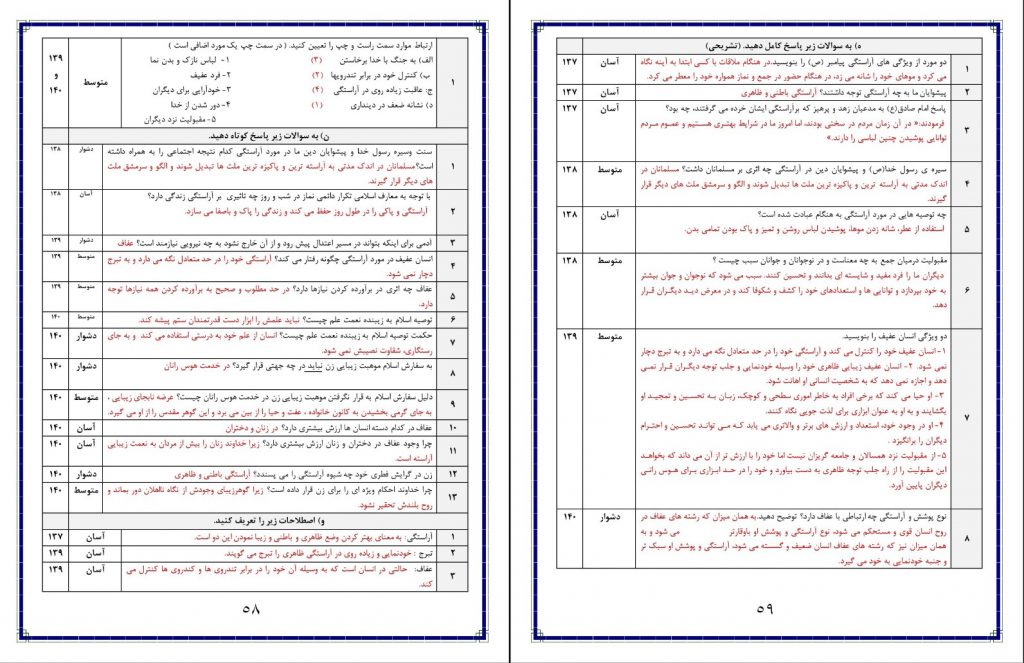 ارتباط موارد سمت راست و چپ را تعیین کنید. ( در سمت چپ یک مورد اضافی است )
الف) به جنگ با خدا برخاستن (۳) ۱- لباس نازک و بدن نما
ب) کنترل خود در برابر تندرویها (۲) ۲- فرد عفیف
ج: عاقبت زیاده روی در آراستگی (۴) ۳- خودآرایی برای دیگران
د) نشانه ضعف در دینداری (۱) ۴- دور شدن از خدا
۵- مقبولیت نزد دیگران
۱
متوسط
۱۳۹
و
۱۴۰
ن) به سوالات زیر پاسخ کوتاه دهید.
۱ سنت وسیره رسول خدا و پیشوایان دین ما در مورد آراستگی کدام نتیجه اجتماعی را به همراه داشته دشوار ۱۳۸
است؟مسلمانان در اندک مدتی به آراسته ترین و پاکیزه ترین ملت ها تبدیل شوند و الگو و سرمشق ملت
های دیگر قرار گیرند.
۲ با توجه به معارف اسلامی تکرار دائمی نماز در شب و روز چه تاثیری بر آراستگی زندگی دارد؟ آسان ۱۳۸
آراستگی و پاکی را در طول روز حفظ می کند و زندگی را پاک و باصفا می سازد.
۳ آدمی برای اینکه بتواند در مسیر اعتدال پیش رود و از آن خارج نشود به چه نیرویی نیازمند است؟ عفاف دشوار ۱۳۹
۴ انسان عفیف در مورد آراستگی چگونه رفتار می کند؟ آراستگی خود را در حد متعادل نگه می دارد و به تبرج متوسط ۱۳۹
دچار نمی شود.
۵ عفاف چه اثری در برآورده کردن نیازها دارد؟ در حد مطلوب و صحیح به برآورده کردن همه نیازها توجه متوسط ۱۳۹
دارد.
۶ توصیه اسلام به زیبنده نعمت علم چیست؟ نباید علمش را ابزار دست قدرتمندان ستم پیشه کند. متوسط ۱۴۰
۷ حکمت توصیه اسلام به زیبنده نعمت علم چیست؟ انسان از علم خود به درستی استفاده می کند و به جای دشوار ۱۴۰
رستگاری، شقاوت نصیبش نمی شود.
۸ به سفارش اسلام موهبت زیبایی زن نباید در چه جهتی قرار گیرد؟ در خدمت هوس رانان دشوار ۱۴۰
۹ دلیل سفارش اسلام به قرار نگرفتن موهبت زیبایی زن در خدمت هوس رانان چیست؟ عرضه نابجای زیبایی ، متوسط ۱۴۰
به جای گرمی بخشیدن به کانون خانواده ، عفت و حیا را از بین می برد و این گوهر مقدس را از او می گیرد.
۱۰ عفاف در کدام دسته انسان ها ارزش بیشتری دارد؟ در زنان و دختران آسان ۱۴۰
۱۱ چرا وجود عفاف در دختران و زنان ارزش بیشتری دارد؟ زیرا خداوند زنان را بیش از مردان به نعمت زیبایی آسان ۱۴۰
آراسته است.
۱۲ زن در گرایش فطری خود چه شیوه آراستگی را می پسندد؟ آراستگی باطنی و ظاهری دشوار ۱۴۰
۱۳ چرا خداوند احکام ویژه ای را برای زن قرار داده است؟ زیرا گوهرزیبای وجودش از نگاه نااهلان دور بماند و متوسط ۱۴۰
روح بلندش تحقیر نشود.
و) اصطلاحات زیر را تعریف کنید.
۱ آراستگی: به معنای بهتر کردن وضع ظاهری و باطنی و زیبا نمودن این دو است. آسان ۱۳۷
۲ تبرج : خودنمایی و زیاده روی در آراستگی ظاهری را تبرج می گویند. آسان ۱۳۹
۳ عفاف: حالتی در انسان است که به وسیله آن خود را در برابر تندروی ها و کندروی ها کنترل می آسان ۱۳۹
کند.
۵۸
ه) به سوالات زیر پاسخ کامل دهید. (تشریحی)
۱ دو مورد از ویژگی های آراستگی پیامبر (ص) را بنویسید.در هنگام ملاقات با کسی ابتدا به آینه نگاه آسان ۱۳۷
می کرد و موهای خود را شانه می زد، در هنگام حضور در جمع و نماز همواره خود را معطر می کرد.
۲ پیشوایان ما به چه آراستگی توجه داشتند؟ آراستگی باطنی و ظاهری آسان ۱۳۷
۳ پاسخ امام صادق(ع) به مدعیان زهد و پرهیز که برآراستگی ایشان خرده می گرفتند، چه بود؟ آسان ۱۳۷
فرمودند:« در آن زمان مردم در سختی بودند، اما امروز ما در شرایط بهتری هستیم و عموم مردم
توانایی پوشیدن چنین لباسی را دارند.»
۴ سیره ی رسول خدا(ص) و پیشوایان دین در آراستگی چه اثری بر مسلمانان داشت؟ مسلمانان در متوسط ۱۳۸
اندک مدتی به آراسته ترین و پاکیزه ترین ملت ها تبدیل شوند و الگو و سرمشق ملت های دیگر قرار
گیرند.
۵ چه توصیه هایی در مورد آراستگی به هنگام عبادت شده است؟ آسان ۱۳۸
استفاده از عطر، شانه زدن موها، پوشیدن لباس روشن و تمیز و پاک بودن تمامی بدن.
۶ مقبولیت درمیان جمع به چه معناست و در نوجوانان و جوانان سبب چیست ؟ متوسط ۱۳۸
دیگران ما را فرد مفید و شایسته ای بدانند و تحسین کنند. سبب می شود که نوجوان و جوان بیشتر
به خود بپردازد و توانایی ها و استعدادهای خود را کشف و شکوفا کند و در معرض دید دیگران قرار
دهد.
۷ دو ویژگی انسان عفیف را بنویسید. متوسط ۱۳۹
۱- انسان عفیف خود را کنترل می کند و آراستگی خود را در حد متعادل نگه می دارد و به تبرج دچار
نمی شود. ۲- انسان عفیف زیبایی ظاهری خود را وسیله خودنمایی و جلب توجه دیگران قرار نمی
دهد و اجازه نمی دهد که به شخصیت انسانی او اهانت شود.
۳- او حیا می کند که برخی افراد به خاطر اموری سطحی و کوچک، زبان به تحسین و تمجید او
بگشایند و به او به عنوان ابزاری برای لذت جویی نگاه کنند.
۴- او در وجود خود، استعداد و ارزش های برتر و والاتری می یابد که می توانند تحسین و احترام
دیگران را برانگیزد .
۵- از مقبولیت نزد همسالان و جامعه گریزان نیست اما خود را با ارزش تر از آن می داند که بخواهد
این مقبولیت را از راه جلب توجه ظاهری به دست بیاورد و خود را در حد ابزاری برای هوس رانی
دیگران پایین آورد.
۸ نوع پوشش و آراستگی چه ارتباطی با عفاف دارد؟ توضیح دهید.به همان میزان که رشته های عفاف در دشوار ۱۴۰
روح انسان قوی و مستحکم می شود، نوع آراستگی و پوشش او باوقارتر می شود و به
همان میزان نیز که رشته های عفاف انسان ضعیف و گسسته می شود، آراستگی و پوشش او سبک تر
و جنبه خودنمایی به خود می گیرد.
۵۹